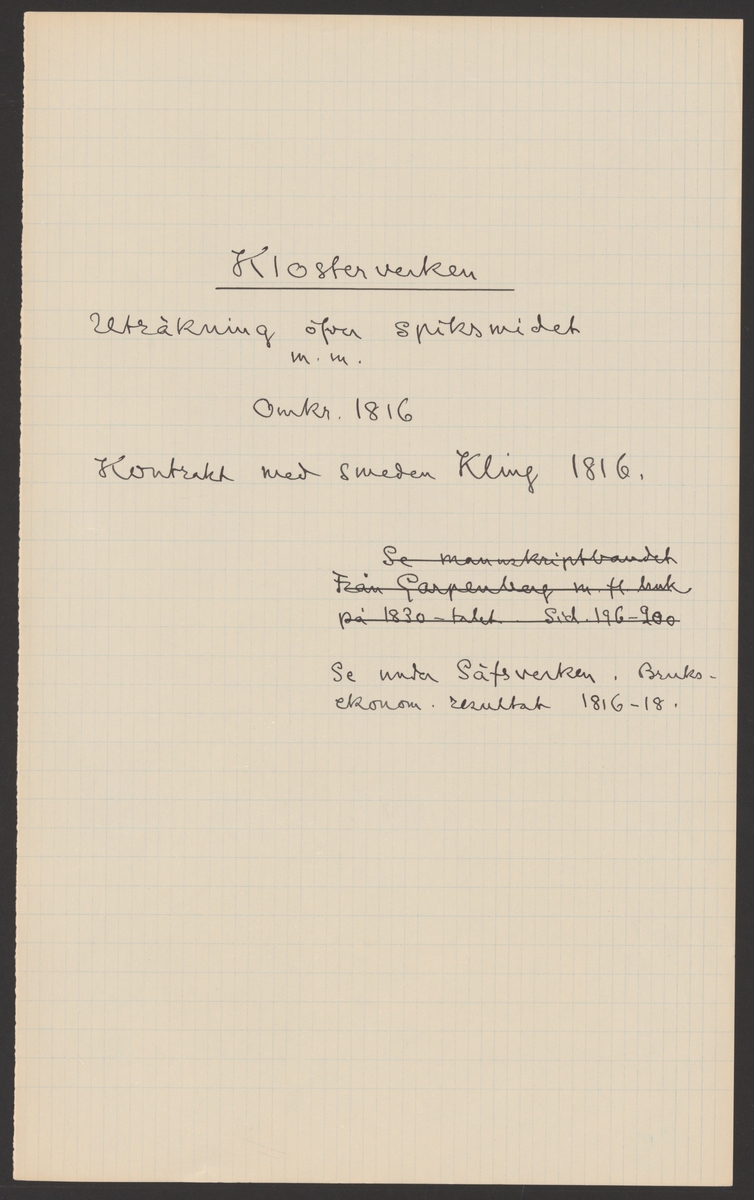 Klosterverken
Uträkning öfver spiksmidet
m. m.
Omkr. 1816
Kontrakt med smeden Kling 1816.
Se manuskriptbandet
Från Garpenberg m. fl bruk
på 1830-talet. Sid. 196-200
Se under Säfsverken. Bruks-
ekonom. resultat 1816-18.